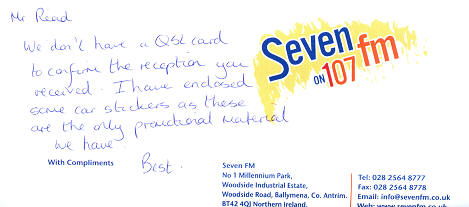 Mr Read
We don't have a QSL card
to confirm the reception you
received. I have enclosed
some car stickers as these
are the only promotional material
we have.
Best.
Seven fm
ON 107
With Compliments
Seven FM
No 1 Millennium Park,
Woodside Industrial Estate,
Woodside Road, Ballymena, Co. Antrim.
BT42 4QJ Northern Ireland.
Tel: 028 2564 8777
Fax: 028 2564 8778
Email: info@sevenfm.co.uk
Web: www.sevenfm.co.uk